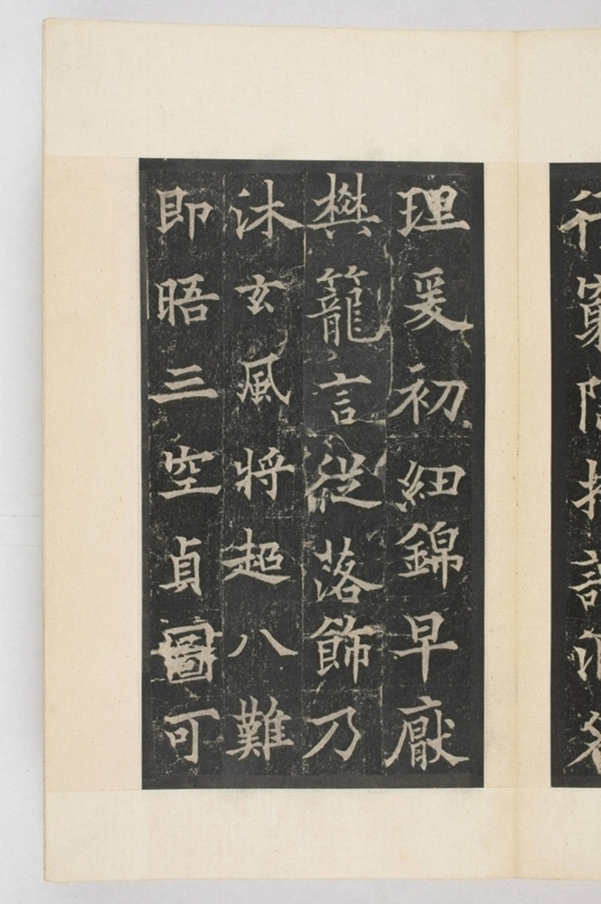 理爰初細錦早厭
樊籠言従落飾乃
沐玄風将超八難
即晤三空貞圖可